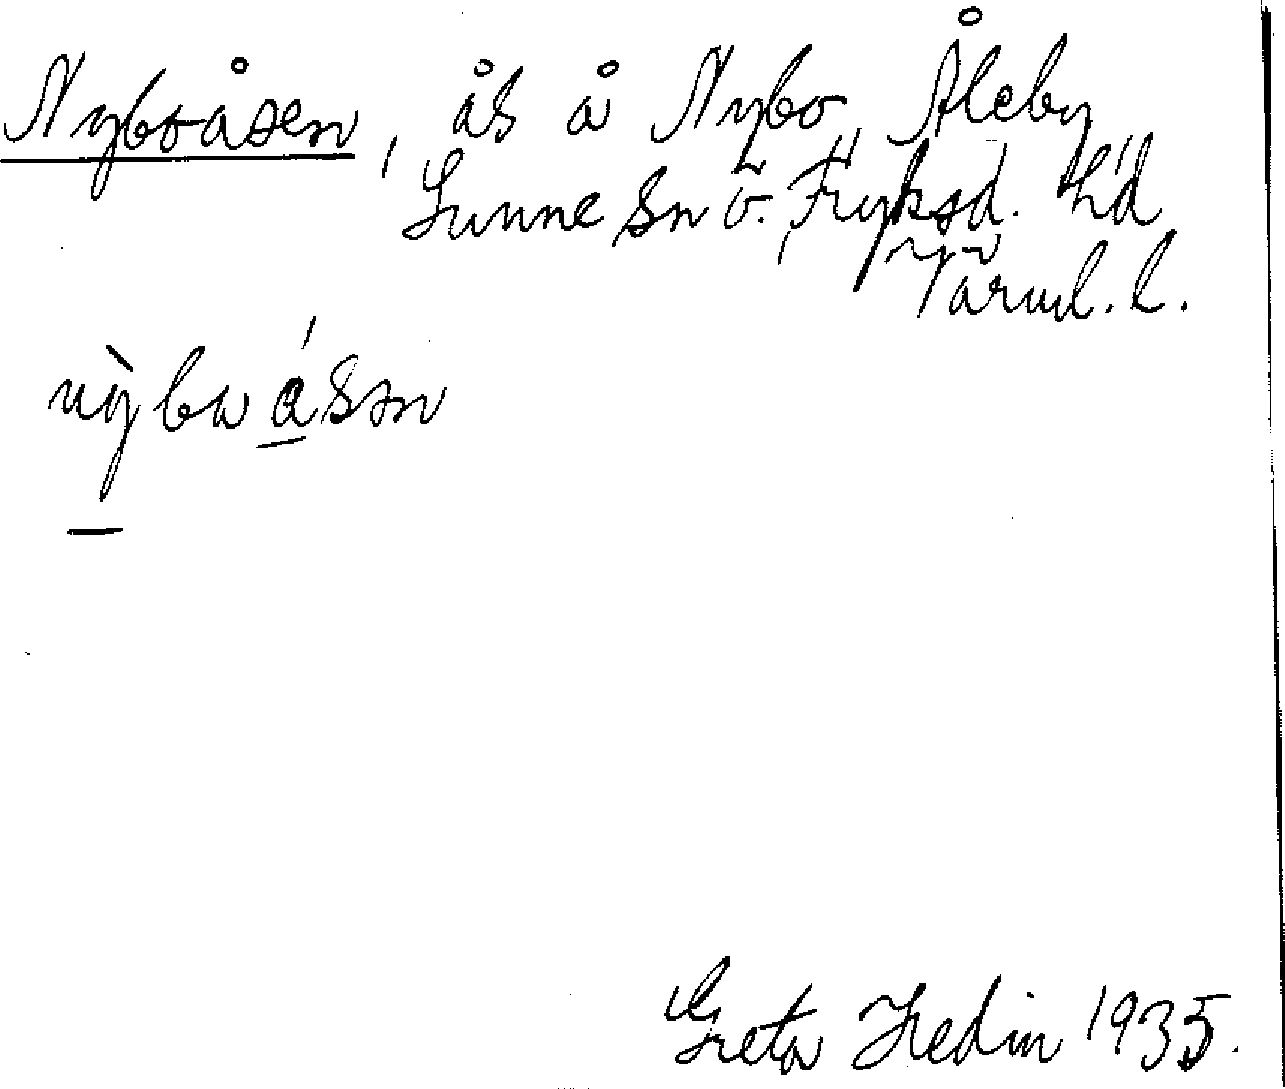 Nyboåsen, ås å Nybo, Åleby
Sunne sn Ö. Fryksd. hd
Värml. l.
nỳbωásn
Greta Hedin 1935.